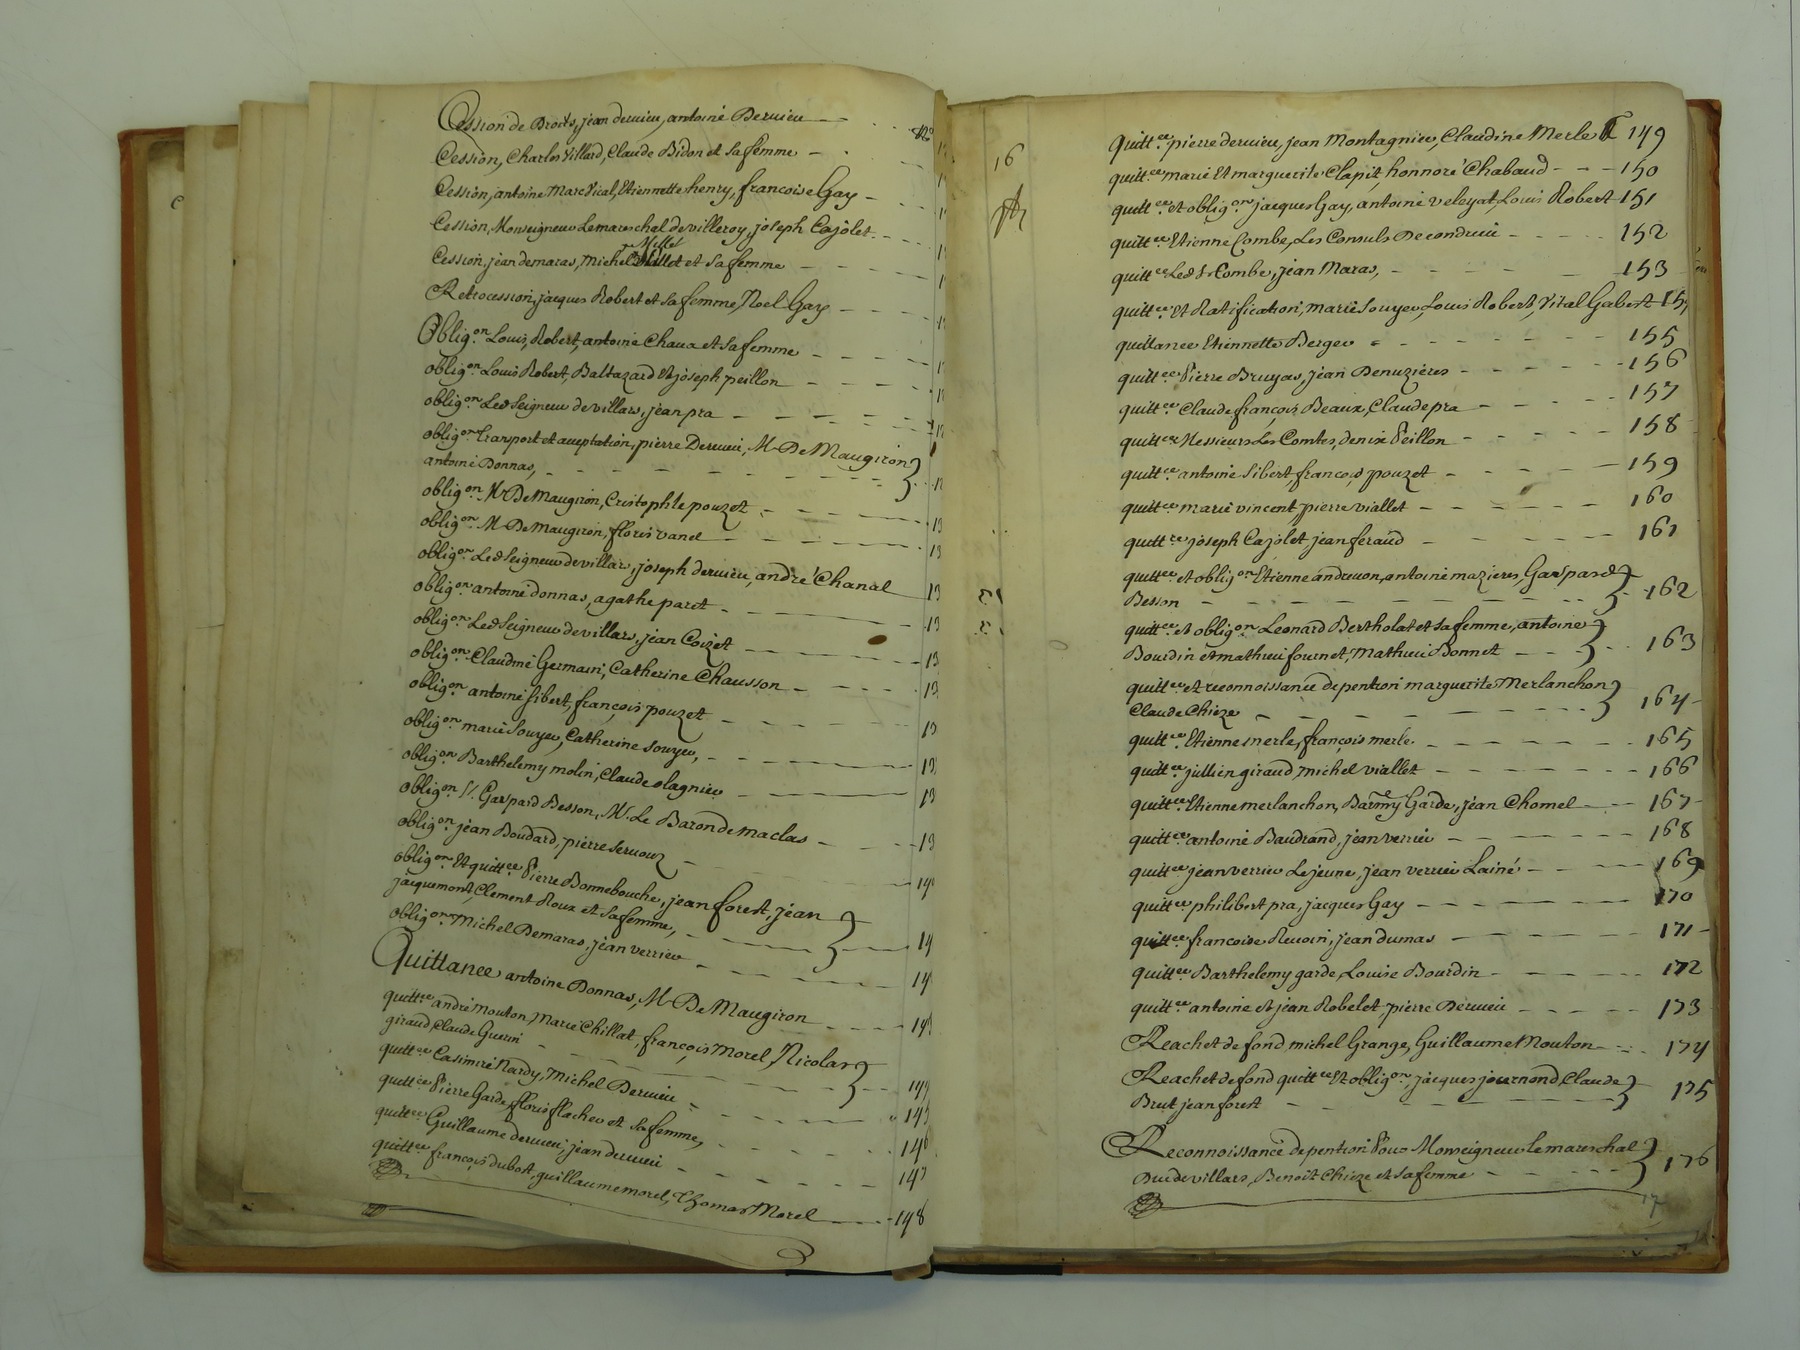 Cession de Droits, jean deruieu, antoine Deruieu
Cession, Charles Villard, Claude Bidon et sa femme
Cession, antoine Marc Vical, Etiennette henry, francoise Gay
Cession, Monseigneur Le mareschal de villeroy, joseph Cajolet
Millet
Cession, jean demaras, michel et sa femme
Retrocession, jacques Robert et sa femme, Noel Gay
Oblig.on Louis Robert, antoine Chaux et sa femme
oblig.on Louis Robert, Baltazard et joseph peillon
oblig.on Led Seigneur de villars, jean pra
oblig.on transport et acceptation, pierre Deruieu, Mr De Maugiron
antoine Donnas,
oblig.on Mr De Maugiron, Cristophle pouzet
oblig.on Mr De Maugiron, floris vanel
oblig.on Led Seigneur de villars, joseph deruieu, andré Chanal
oblig.on antoine donnas, agathe paret
oblig.on Led Seigneur de villars, jean Coizet
oblig.on Claudine Germain, Catherine Chausson
oblig.on antoine sibert, françois pouzet
oblig.on marie souyer, Catherine souyer,
oblig.on Barthelemy molin, Claude olagnier
oblig.on Sr. Gaspard Besson, Mr. Le Baron de maclas
oblig.on jean Boudard, pierre seruouz
oblig.on Et quitt.ce Pierre Bonnebouche, jean forest, jean
jacquemont, Clement Roux et sa femme,
oblig.on Michel Demaras, jean verrier
Quittance antoine Donnas, Mr De Maugiron
quitt.ce andré mouton, Marie Chillat, françois Morel, Nicolas
giraud, Claude Guerin
quitt.ce Casimire Nardy, Michel Deruieu
quitt.ce Pierre Garde, floris flacher et sa femme,
quitt.ce Guillaume deruieu, jean deruieu 147
quitt.ce françois dubost, guillaume morel, Thomas Morel 148
16
quitt.ce pierre deruieu, jean Montagnier, Claudine Merle 149
quitt.ce marie Et marguerite Clapit, honnoré Chabaud 150
quitt.ce et oblig.on jacques Gay, antoine veleyat, Louis Robert 151
quitt.ce Etienne Combe, Les Consuls De condrieu 152
quitt.ce Led Sr Combe, jean Maras, 153
quitt.ce Et Ratification, marie souyer, Louis Robert, Vital Gabert
quittance Etiennette Berger 155
quitt.ce Pierre Bruyas, jean Denuzières 156
quitt.ce Claude françois Beaux, Claude pra 157
quitt.ce Messieurs Les Comtes, denis Peillon 158
quitt.ce antoine sibert, françois pouzet 159
quitt.ce marie vincent, pierre viallet 160
quitt.ce joseph Cajolet jean feraud 161
quitt.ce et oblig.on Etienne andreuon, antoine mazieres, Gaspard
Besson 162
quitt.ce et oblig.on Leonard Bertholat et sa femme, antoine
Bourdin et mathieu fournet, Mathieu Bonnet 163
quitt.ce et reconnoissance de pention marguerite Merlanchon
Claude Chieze 164
quitt.ce Etienne merle, françois merle. 165
quitt.ce jullien giraud, michel viallet 166
quitt.ce Etienne merlanchon, Barmy Garde, jean Chomel 167
quitt.ce antoine Baudrand, jean verrier 168
quitt.ce jean verrier Le jeune, jean verrier Lainé 169
quitt.ce philibert pra, jacques Gay 170
quitt.ce francoise Reuoin, jean dumas 171
quitt.ce Barthelemy garde, Louise Bourdin 172
quitt.ce antoine et jean Robelet, pierre Deruieu 173
Reachet de fond, michel Grange, Guillaume Mouton 174
Reachet de fond quitt.ce Et oblig.on, jacques journond, Claude
Brut, jean forest 175
Reconnoissance de pention Pour Monseigneur le mareschal
Duc de villars, Benoit Chieze et sa femme 176